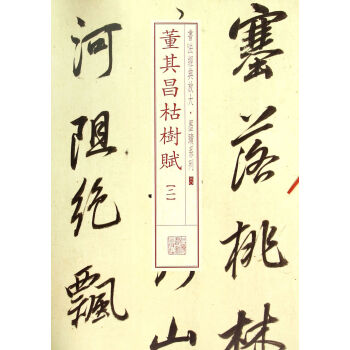 塞落桃林
書法經典放大·墨蹟系列
董其昌枯樹賦
【二】
山
河阻絶飄